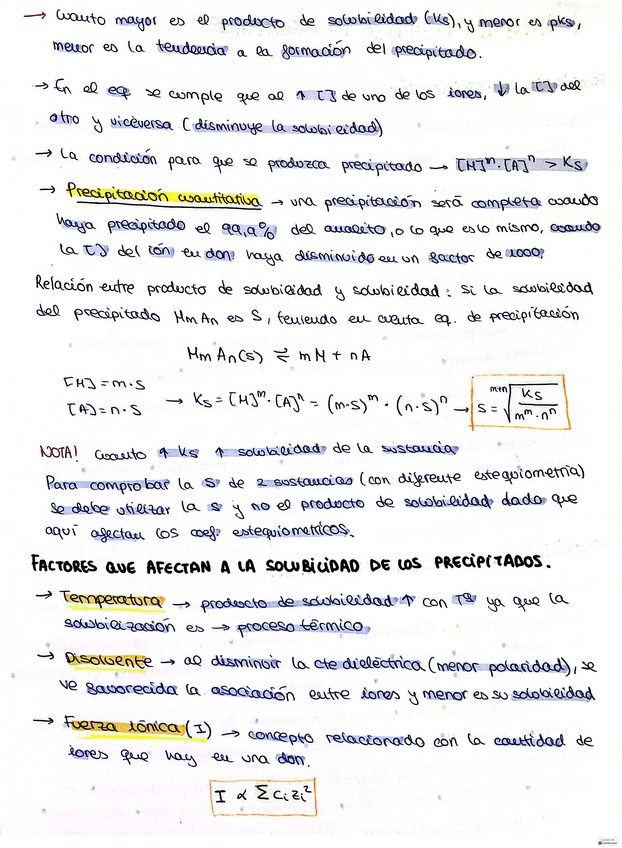 → Cuanto mayor es el producto de solubilidad (Ks), y menor es pks,
menor es la tendencia a la formación del precipitado.
→ En el eq se cumple que al ↑ [] de uno de los iones, ↓ la [] del
otro y viceversa (disminuye la solubilidad)
→ La condición para que se produzca precipitado → [M]ᵐ·[A]ⁿ > Ks
→ Precipitación cuantitativa → una precipitación será completa cuando
haya precipitado el 99,9% del analito, o lo que es lo mismo, cuando
la [] del ión en don haya disminuido en un factor de 1000.
Relación entre producto de solubilidad y solubilidad: Si la solubilidad
del precipitado MmAn es S, teniendo en cuenta eq. de precipitación
MmAn(s) ⇌ mM + nA
[M] = m·S
[A] = n·S
→ Ks = [M]ᵐ·[A]ⁿ = (m·S)ᵐ · (n·S)ⁿ → S = ᵐ⁺ⁿ√(Ks / mᵐ·nⁿ)
NOTA! Cuanto ↑ Ks ↑ solubilidad de la sustancia
Para comprobar la S de 2 sustancias (con diferente estequiometría)
se debe utilizar la s y no el producto de solubilidad dado que
aquí afectan los coef. estequiometricos.
FACTORES QUE AFECTAN A LA SOLUBILIDAD DE LOS PRECIPITADOS.
→ Temperatura → producto de solubilidad ↑ con Tª ya que la
solubilización es → proceso térmico
→ Disolvente → al disminuir la cte dieléctrica (menor polaridad), se
ve favorecida la asociación entre iones y menor es su solubilidad
→ Fuerza iónica (I) → concepto relacionado con la cantidad de
iones que hay en una don.
I ∝ Σ cᵢ zᵢ²